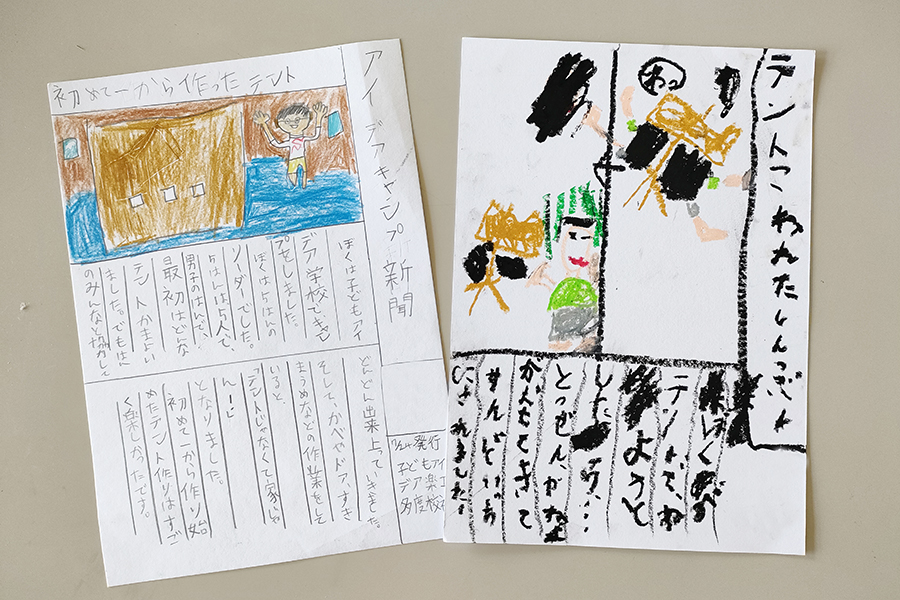 アイデアキャンプ新聞
初めて一から作ったテント
ぼくは子どもアイ
デア学校でキャン
プをしました。
ぼくは5はんの
リーダーでした。
5はんは5人で、
男子のはんで、
最初はどんな
テントかまよい
ました。でもはん
のみんなと協力して
どんどん出来上っていきました。
そして、かべやドア、すき
まうめなどの作業をして
いると、
「テントじゃなくて家じゃ
ん―」
となりました。
初めて一から作り始
めたテント作りはすご
く楽しかったです。
発行
子どもアイ
デア楽
多度
テントこわれたしんぶん
わっ
ぼくが
テントで、ね
ようと
とつぜん、